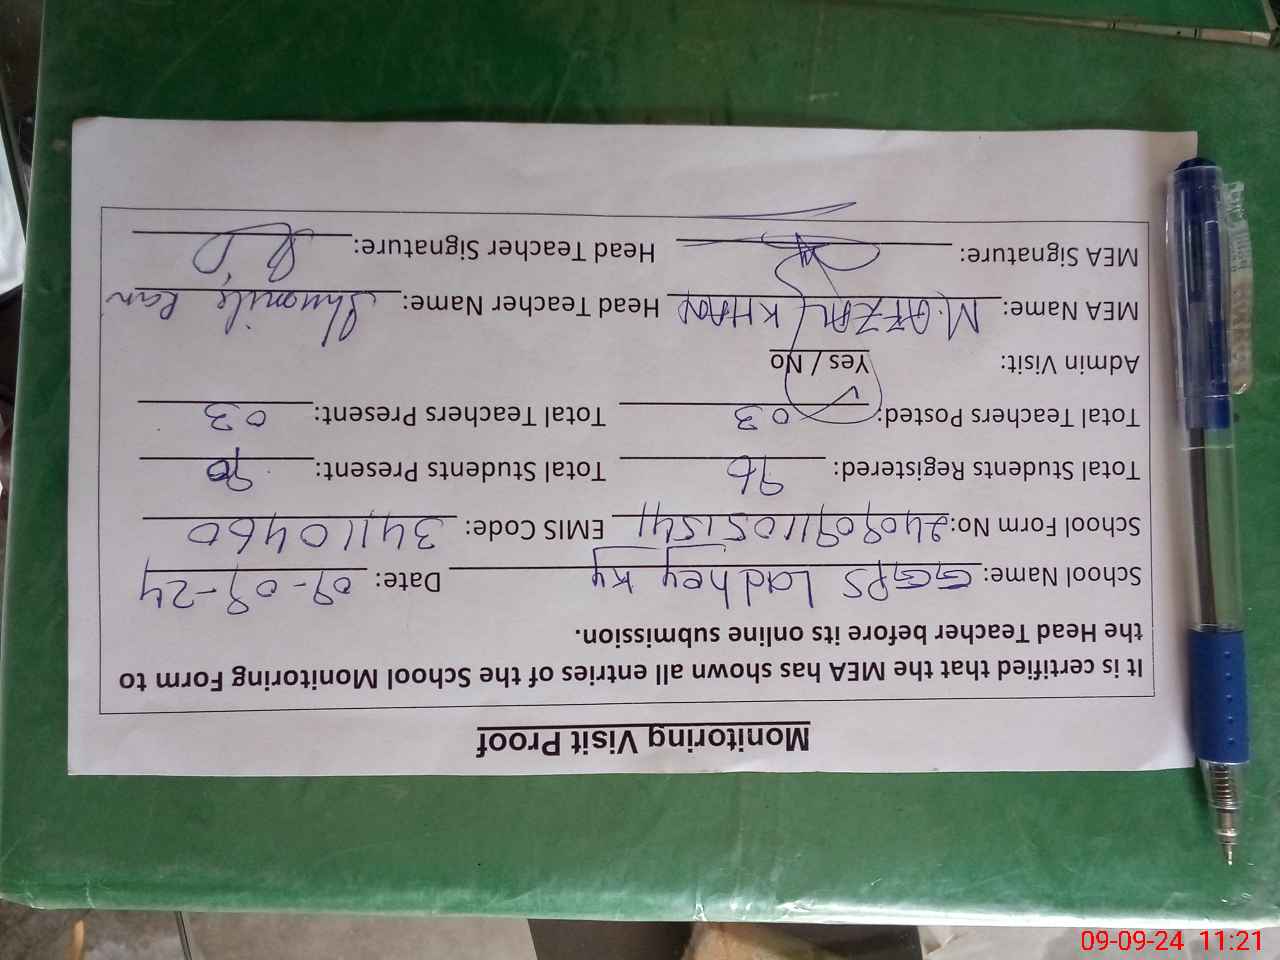 Monitoring Visit Proof
It is certified that the MEA has shown all entries of the School Monitoring Form to
the Head Teacher before its online submission.
School Name: GGPS Ladhey Ky Date: 09-09-24
School Form No: 24090911051541 EMIS Code: 34110460
Total Students Registered: 96 Total Students Present: 90
Total Teachers Posted: 03 Total Teachers Present: 03
Admin Visit: Yes / No
MEA Name: M. AFZAL KHAN Head Teacher Name:
MEA Signature: Head Teacher Signature:
09-09-24 11:21